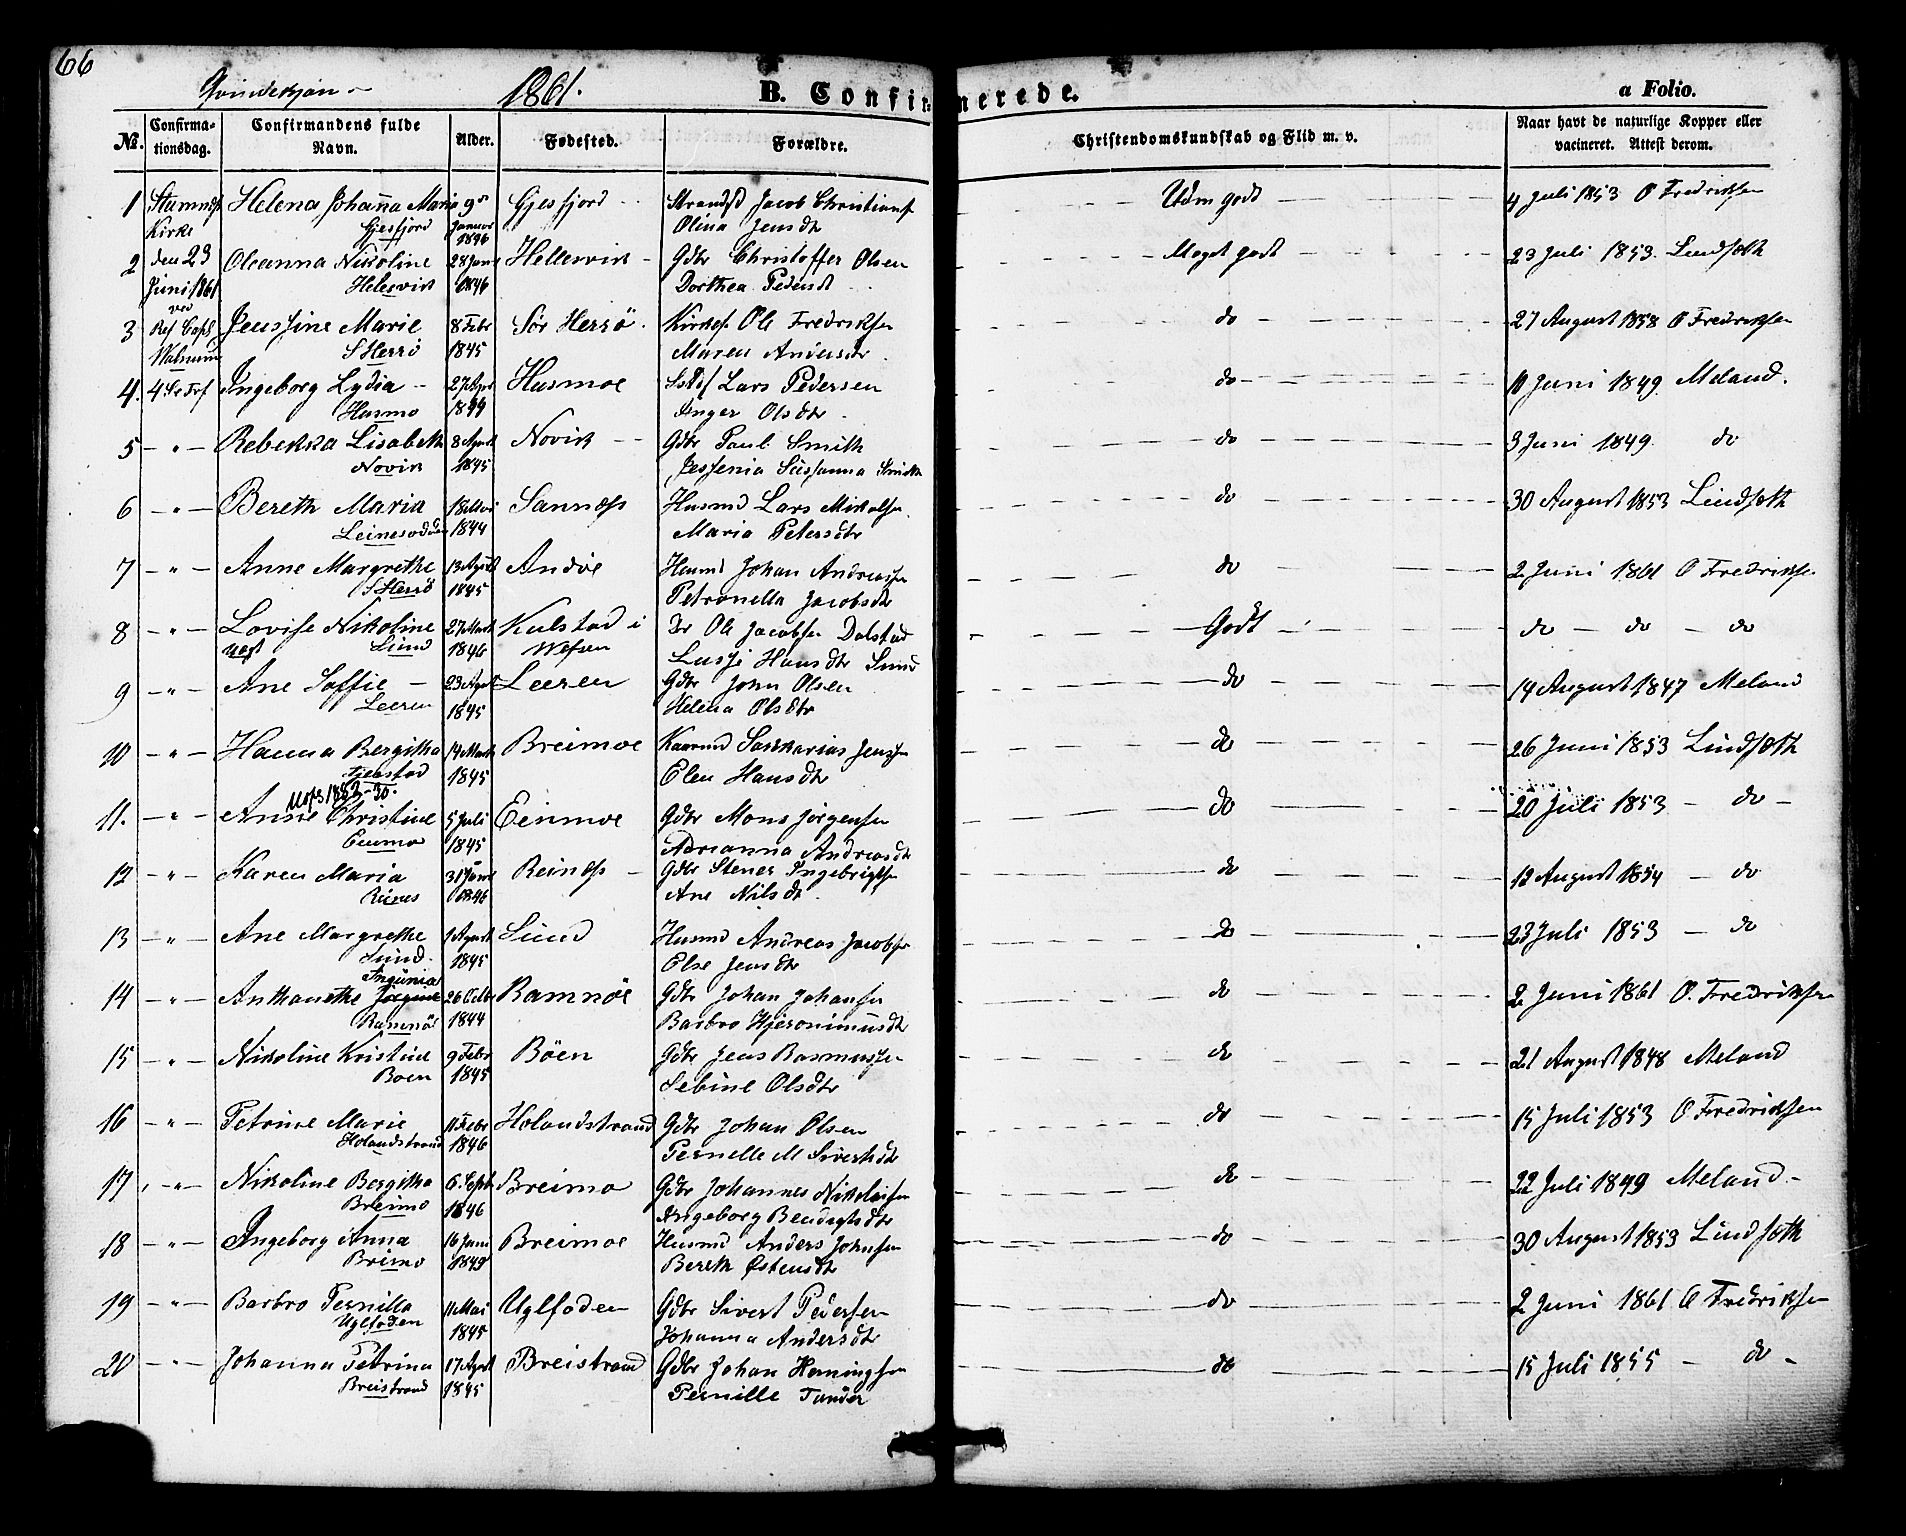 66
Qvindekjøn 1861. B. Confirmerede. a Folio.
No. Confirmationsdag. Confirmandens fulde Navn. Alder. Fødested. Forældre. Christendomskundskab og Flid m. v. Naar havt de naturlige Kopper eller vacineret. Attest derom.
1 Stamnæs Helena Johanna Maria 9 Gjesfjord Jacob Christians Udm godt 4 Juli 1853 O Fredriksen
Kirke Gjesfjord Januar 1846 Olina Jensdtr
2 den 23 Oleanna Nikoline 28 Janr Hellesvik Gdbr Christoffer Olsen Meget godt 23 Juli 1853 Lindsøth
Juni 1861 Helesvik 1846 Dorthea Pedersd
ved
3 Jenssine Marie 8 Febr Sør Herrö Ole Fredriksen do 27 August 1858 O Fredriksen
S Herrö 1845 Maren Andersdtr
4. Ingeborg Lydia 27 Apr Husmoe Lars Pedersen do 11 Juni 1849 Meland.
Husmo 1844 Inger Olsdtr
5 - " - Rebekka Lisabeth 8 April Novik Gdbr Paul Smith do 3 Juni 1849 do
Novik 1845 Jessenia Susanna Smith
6 - " - Bereth Maria 18 Sannæs Husmd Lars Mikalsen do 30 August 1853 Lindsøth
Leinesodden 1844 Maria Petersdtr
7 - " - Anne Margrethe 13 April Andöe Husmd Johan Andreasen do 2 Juni 1861 O Fredriksen
S Herrö 1845 Petronella Jacobsdtr
8 - " - Lovise Nikoline 27 Mart Kulstad i Ole Jacobsen Dolstad Godt do - do - do
Lund 1846 Wefsen Hansdtr Lund
9 - " - Ane Soffie 23 April Leeren Gdbr John Olsen do 14 August 1847 Meland
Leeren 1845 Helena Olsdtr
10 - " - Hanna Bergitha 14 Mart Breimoe Saskarias Jensen do 26 Juni 1853 Lindsøth
1845 Elen Hansdtr
11. - " - Anne Christine 5 Juli Einmoe Gdbr Mons Jørgensen do 20 Juli 1853 - do -
Einmo 1845 Adrianna Andreasdtr
12 - " - Karen Maria 31 Janr Reinæs Gdbr Stener Ingebrigtsen do 12 August 1854 - do
1846 Ane Nilsdtr
13 - " - Ane Margrethe 1 April Sund Husmd Andreas Jacobsen do 23 Juli 1853 - do
Sund 1845 Else Jensdtr
Ingünia
14 - " - Anthanethe Jørgine 26 Octbr Ramnöe Gdbr Johan Johansen do 2 Juni 1861 O. Fredriksen
Ramnöe 1844 Barbro Hjeronimusdtr
15 - " - Nikoline Kristine 9 Febr Böen Gdbr Jens Rasmussen do 21 August 1848 Meland
Böen 1845 Sebine Olsdtr
16 - " - Petrine Marie 11 Febr Holandstrand Gdbr Johan Olsen do 15 Juli 1853 O Fredriksen
Holandstrand 1846 Pernelle M Sivertsdtr
17 - " - Nikoline Bergitha 6 Sept Breimo Gdbr Johannes Nikolaisen do 22 Juli 1849 Meland
Breimo 1846 Ingeborg Bendigtsdtr
18 - " - Ingeborg Anna 16 Juni Breimoe Husmd Anders Johnsen do 30 August 1853 Lindsøth
Brimo Bereth Østensdtr
19 - " - Barbro Pernilla 11 Mai Uglfoden Gdbr Sivert Pedersen do 2 Juni 1861 O Fredriksen
Uglfoden 1845 Johanna Andersdtr
20 - " - Johanna Petrina 17 April Breistrand Gdbr Johan Hemingsen do 15 Juli 1855 - do -
Breistrand 1845 Pernille Tander